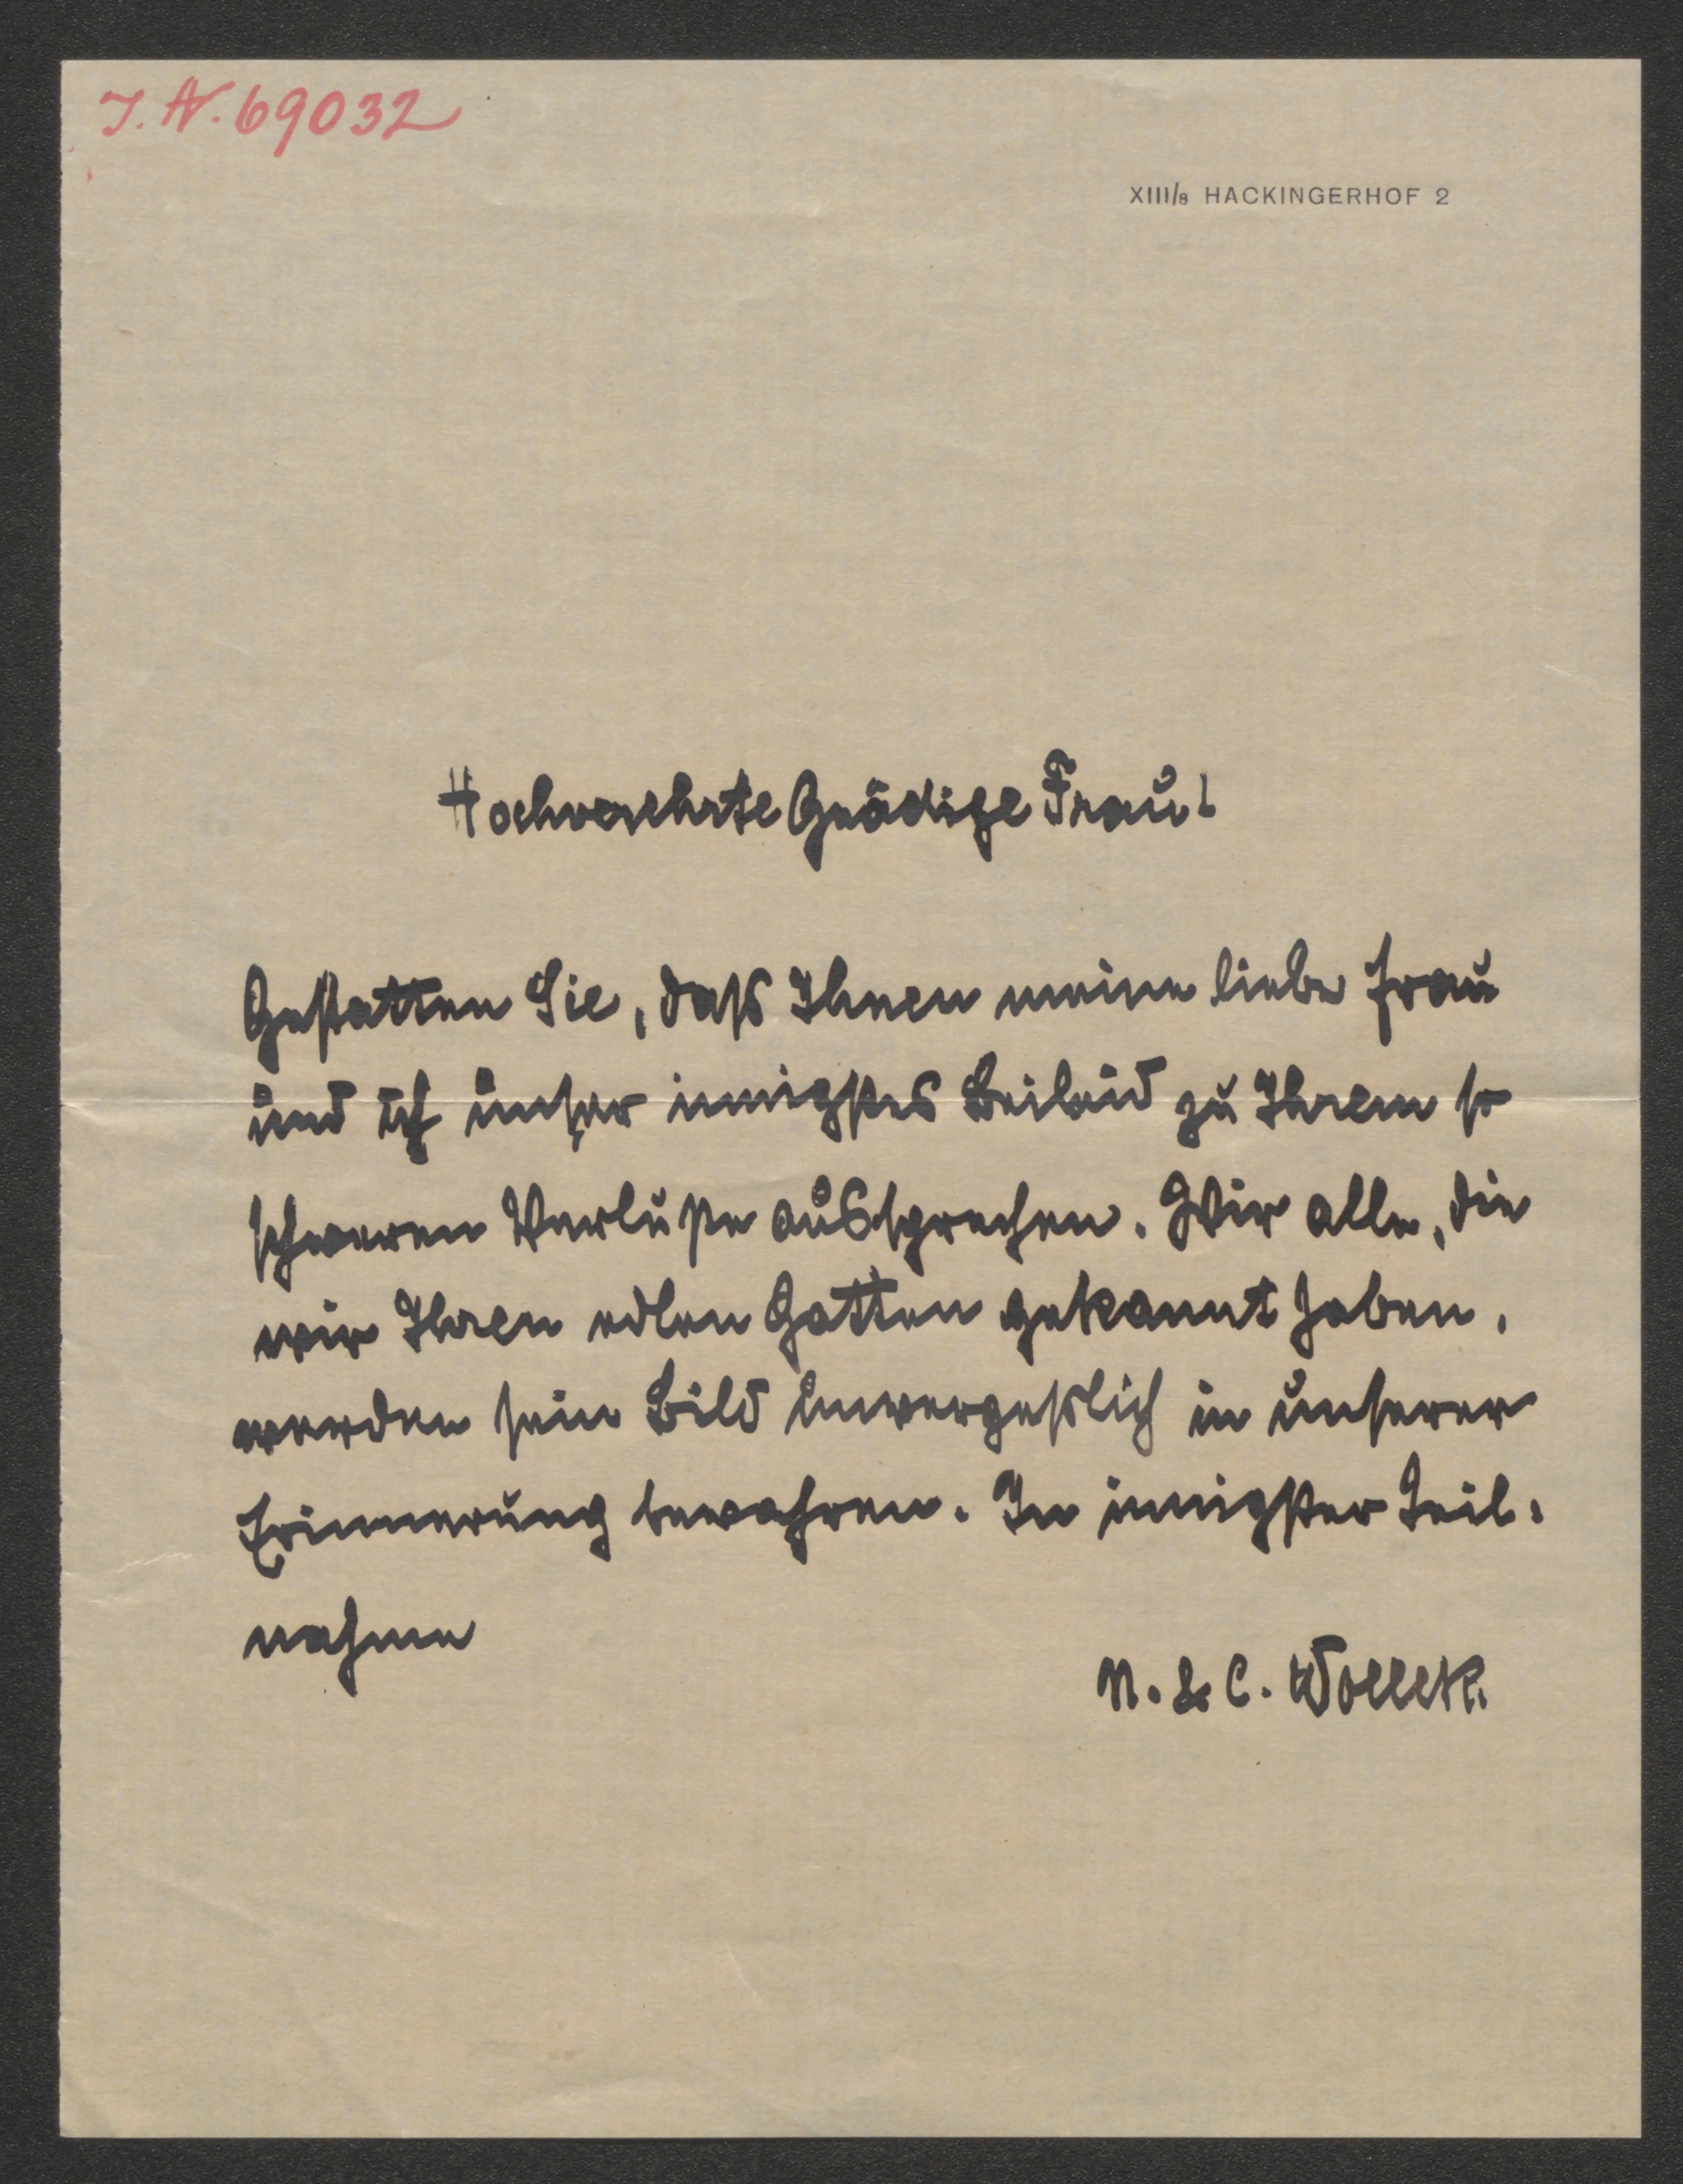 I. N. 69032
XIII/8 HACKINGERHOF 2
Hochverehrte Gnädige Frau!
Gestatten Sie, daß Ihnen meine liebe Frau
und ich unser innigstes Beileid zu Ihrem so
schweren Verluste aussprechen. Wir alle, die
wir Ihren edlen Gatten gekannt haben,
werden sein Bild unvergeßlich in unserer
Erinnerung bewahren. In innigster Teil-
nahme
N. & C. Wollek.